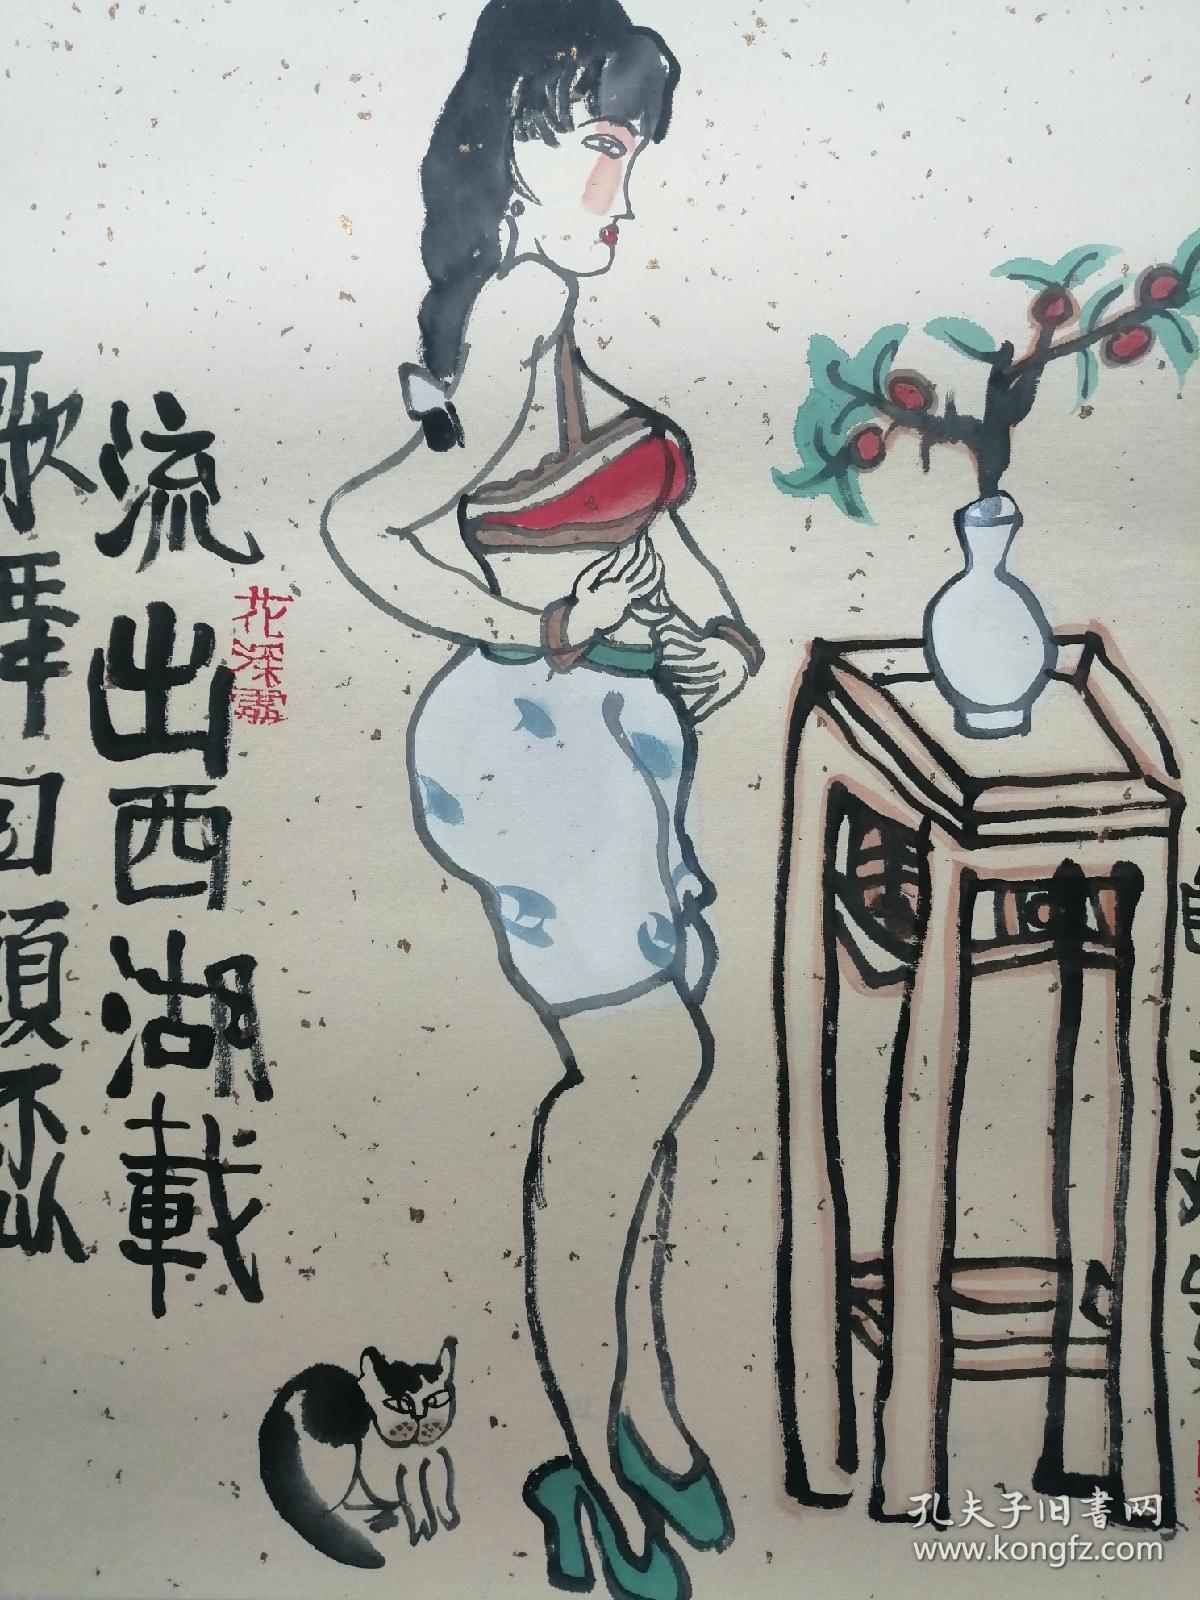 流出西湖載
歌舞回頭不似
花深處
孔夫子旧書网
www.kongfz.com